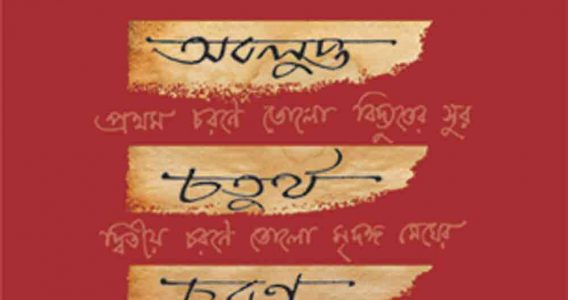 অবলুপ্ত
প্রথম চরণে তোলো বিদ্যুতের সুর
চতুর্থ
দ্বিতীয় চরণে তোলো মৃদঙ্গ মেঘের
চরণ